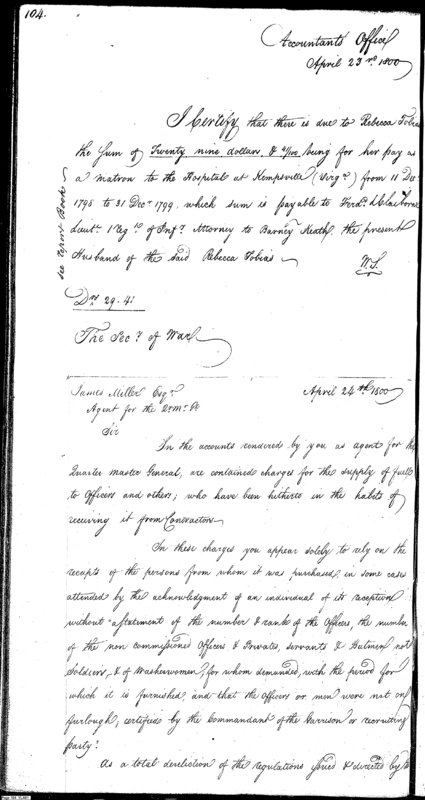 104.
Accountants Office
April 23rd 1800
I Certify that there is due to Rebecca Tobias
the Sum of Twenty nine dollars, & 4/100 being for her pay as
a matron to the Hospital at Kempsville (Virga) from 11 Decr
1798 to 31 Decr 1799, which sum is payable to Ferdd L Claiborne
Lieut 1 Regt of Infy Attorney to Barney Neath, the present
Husband of the said Rebecca Tobias
W.S.
see report Book
Drs 29.4
The Secy of War
James Miller Esqr
April 24th 1800
Agent for the Qr Mr Gl
Sir
In the accounts rendered by you as agent for the
Quarter master General, are contained charges for the supply of fuell
to Officers and others; who have been hitherto in the habits of
receiving it from Contractors
In these charges you appear solely to rely on the
receipts of the persons from whom it was purchased, in some cases
attended by the acknowledgment of an individual of its reception
without a statement of the number & rank of the Officers, the number
of the non commissioned Officers & Privates, servants & Batmen not
Soldiers, & of Washerwomen, for whom demanded, with the period for
which it is furnished, and that the Officers or men were not on
furlough, certified by the Commandant of the Garrison or recruiting
party.
As a total dereliction of the regulations issued & directed by